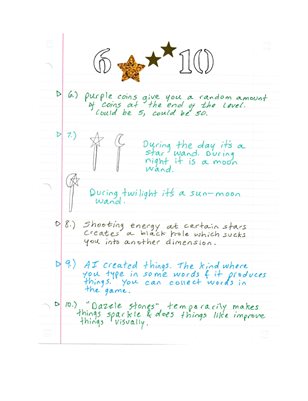 6 10
6.) purple coins give you a random amount
of coins at the end of the level.
Could be 5, could be 50.
7.)
During the day it's a
star wand. During
night it is a moon
wand.
During twilight it's a sun-moon
wand.
8.) Shooting energy at certain stars
creates a black hole which sucks
you into another dimension.
9.) AI created things. The kind where
you type in some words & it produces
things. You can collect words in
the game.
10.) "Dazele Stones", temporarily makes
things sparkle & does things like improve
things visually.